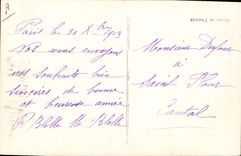 Paris le 30 Xbre 1913
Nous vous envoyons
nos souhaits bien
sincères de bonne
et heureuse année
Monsieur Dufour
à
Saint Flour
Cantal